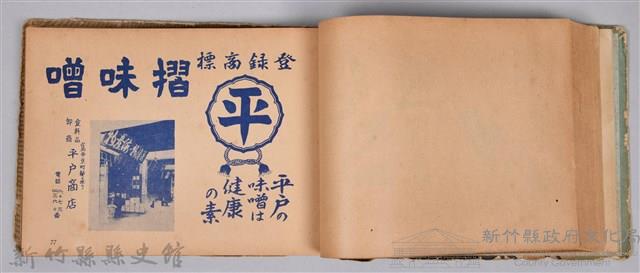 登録商標
平
平戸の
味噌は
健康
の素
摺味噌
食料品
卸商
平戸商店
電話
77
新竹縣縣史館
新竹縣政府文化局
County Government